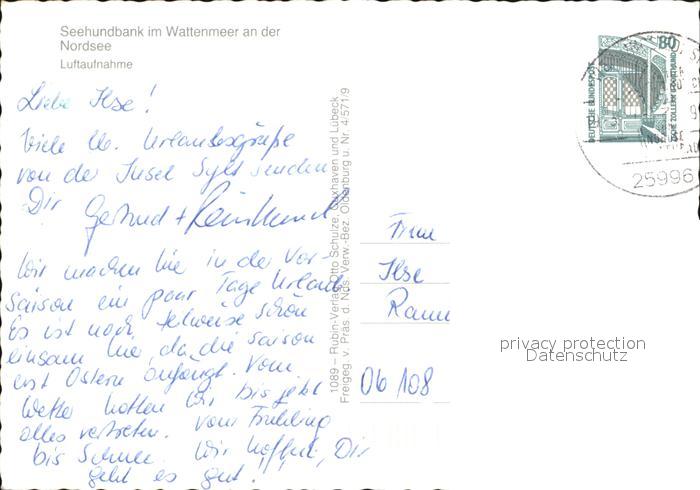 Seehundbank im Wattenmeer an der
Nordsee
Luftaufnahme
Liebe Ilse!
Viele lb. Urlaubsgrüße
von der Insel Sylt senden
Dir Gertrud + Reinhard
Wir machen hie in der Vor-
saison ein paar Tage Urlaub
Es ist noch teilweise schön
einsam hie, da die Saison
erst Ostern anfängt. Vom
Wetter hatten wir bis jetzt
alles vertreten. Vom Frühling
bis Schnee. Wir hoffen, Dir
geht es gut!
1089 – Rubin-Verlag Otto Schulze, Cuxhaven und Lübeck
Freigeg. v. Präs. d. Nds. Verw.-Bez. Oldenburg u. Nr. 4/571/9
Frau
Ilse
06 108
80
DEUTSCHE BUNDESPOST
25996
privacy protection
Datenschutz